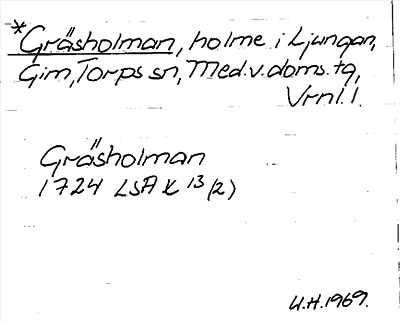 *Gräsholman, holme i Ljungan,
Gim, Torps sn, Med.v.doms.tg,
Vrnl. l.
Gräsholman
1724 LSA X 13/2)
U.H. 1969.